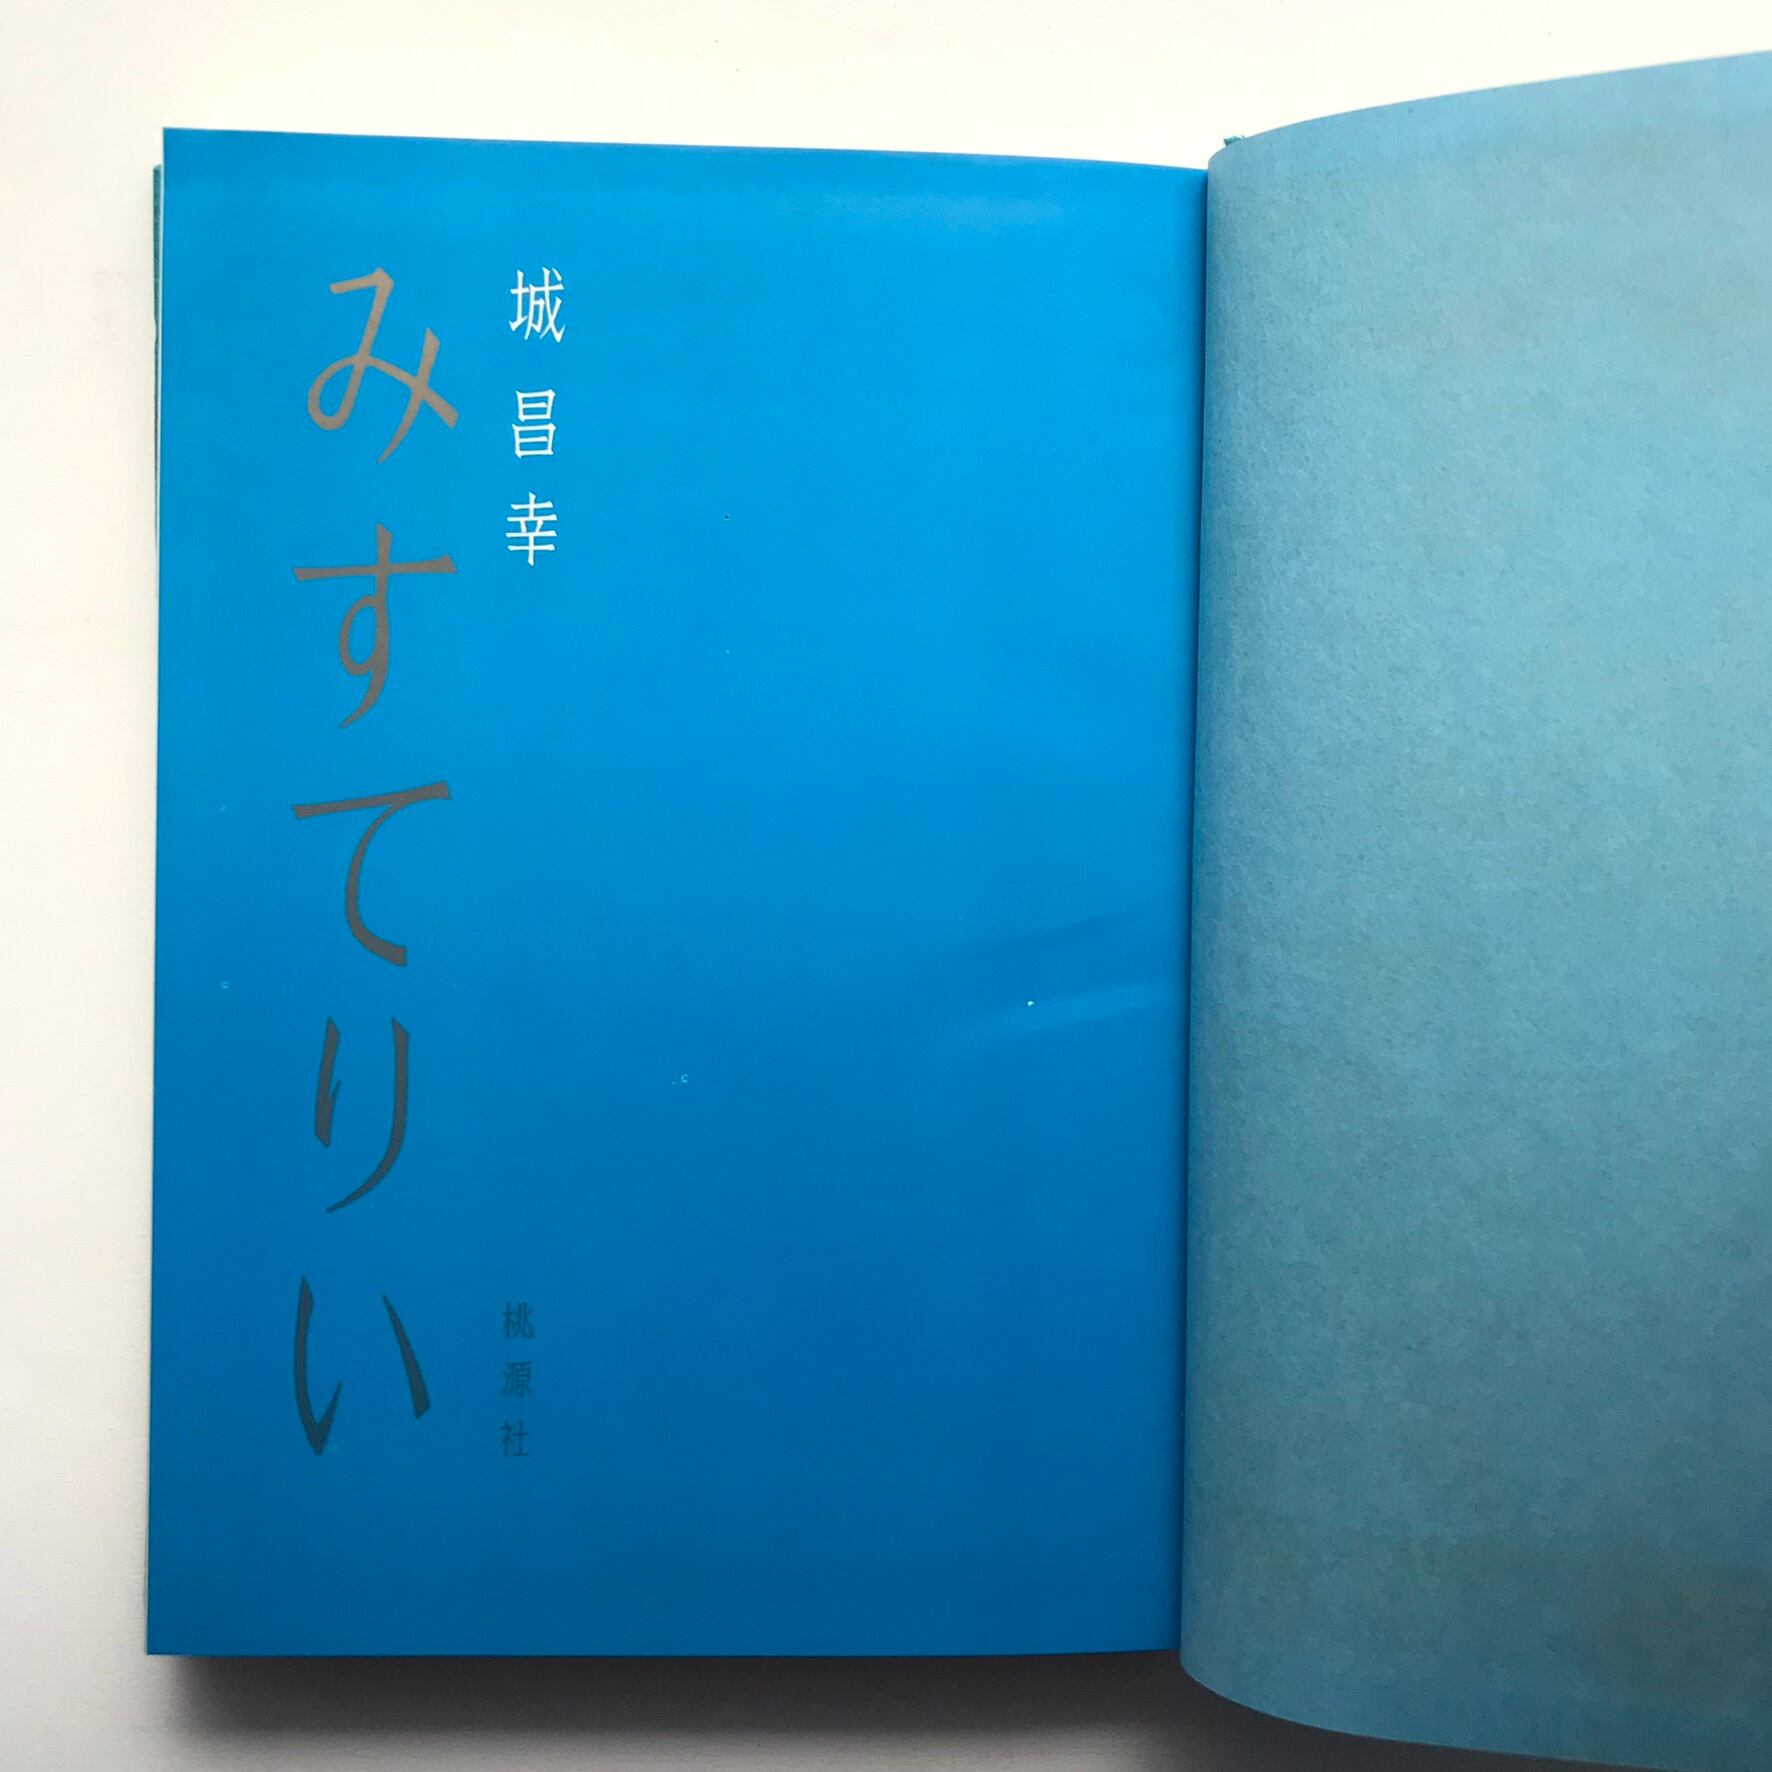 城昌幸
桃源社
みすてりい